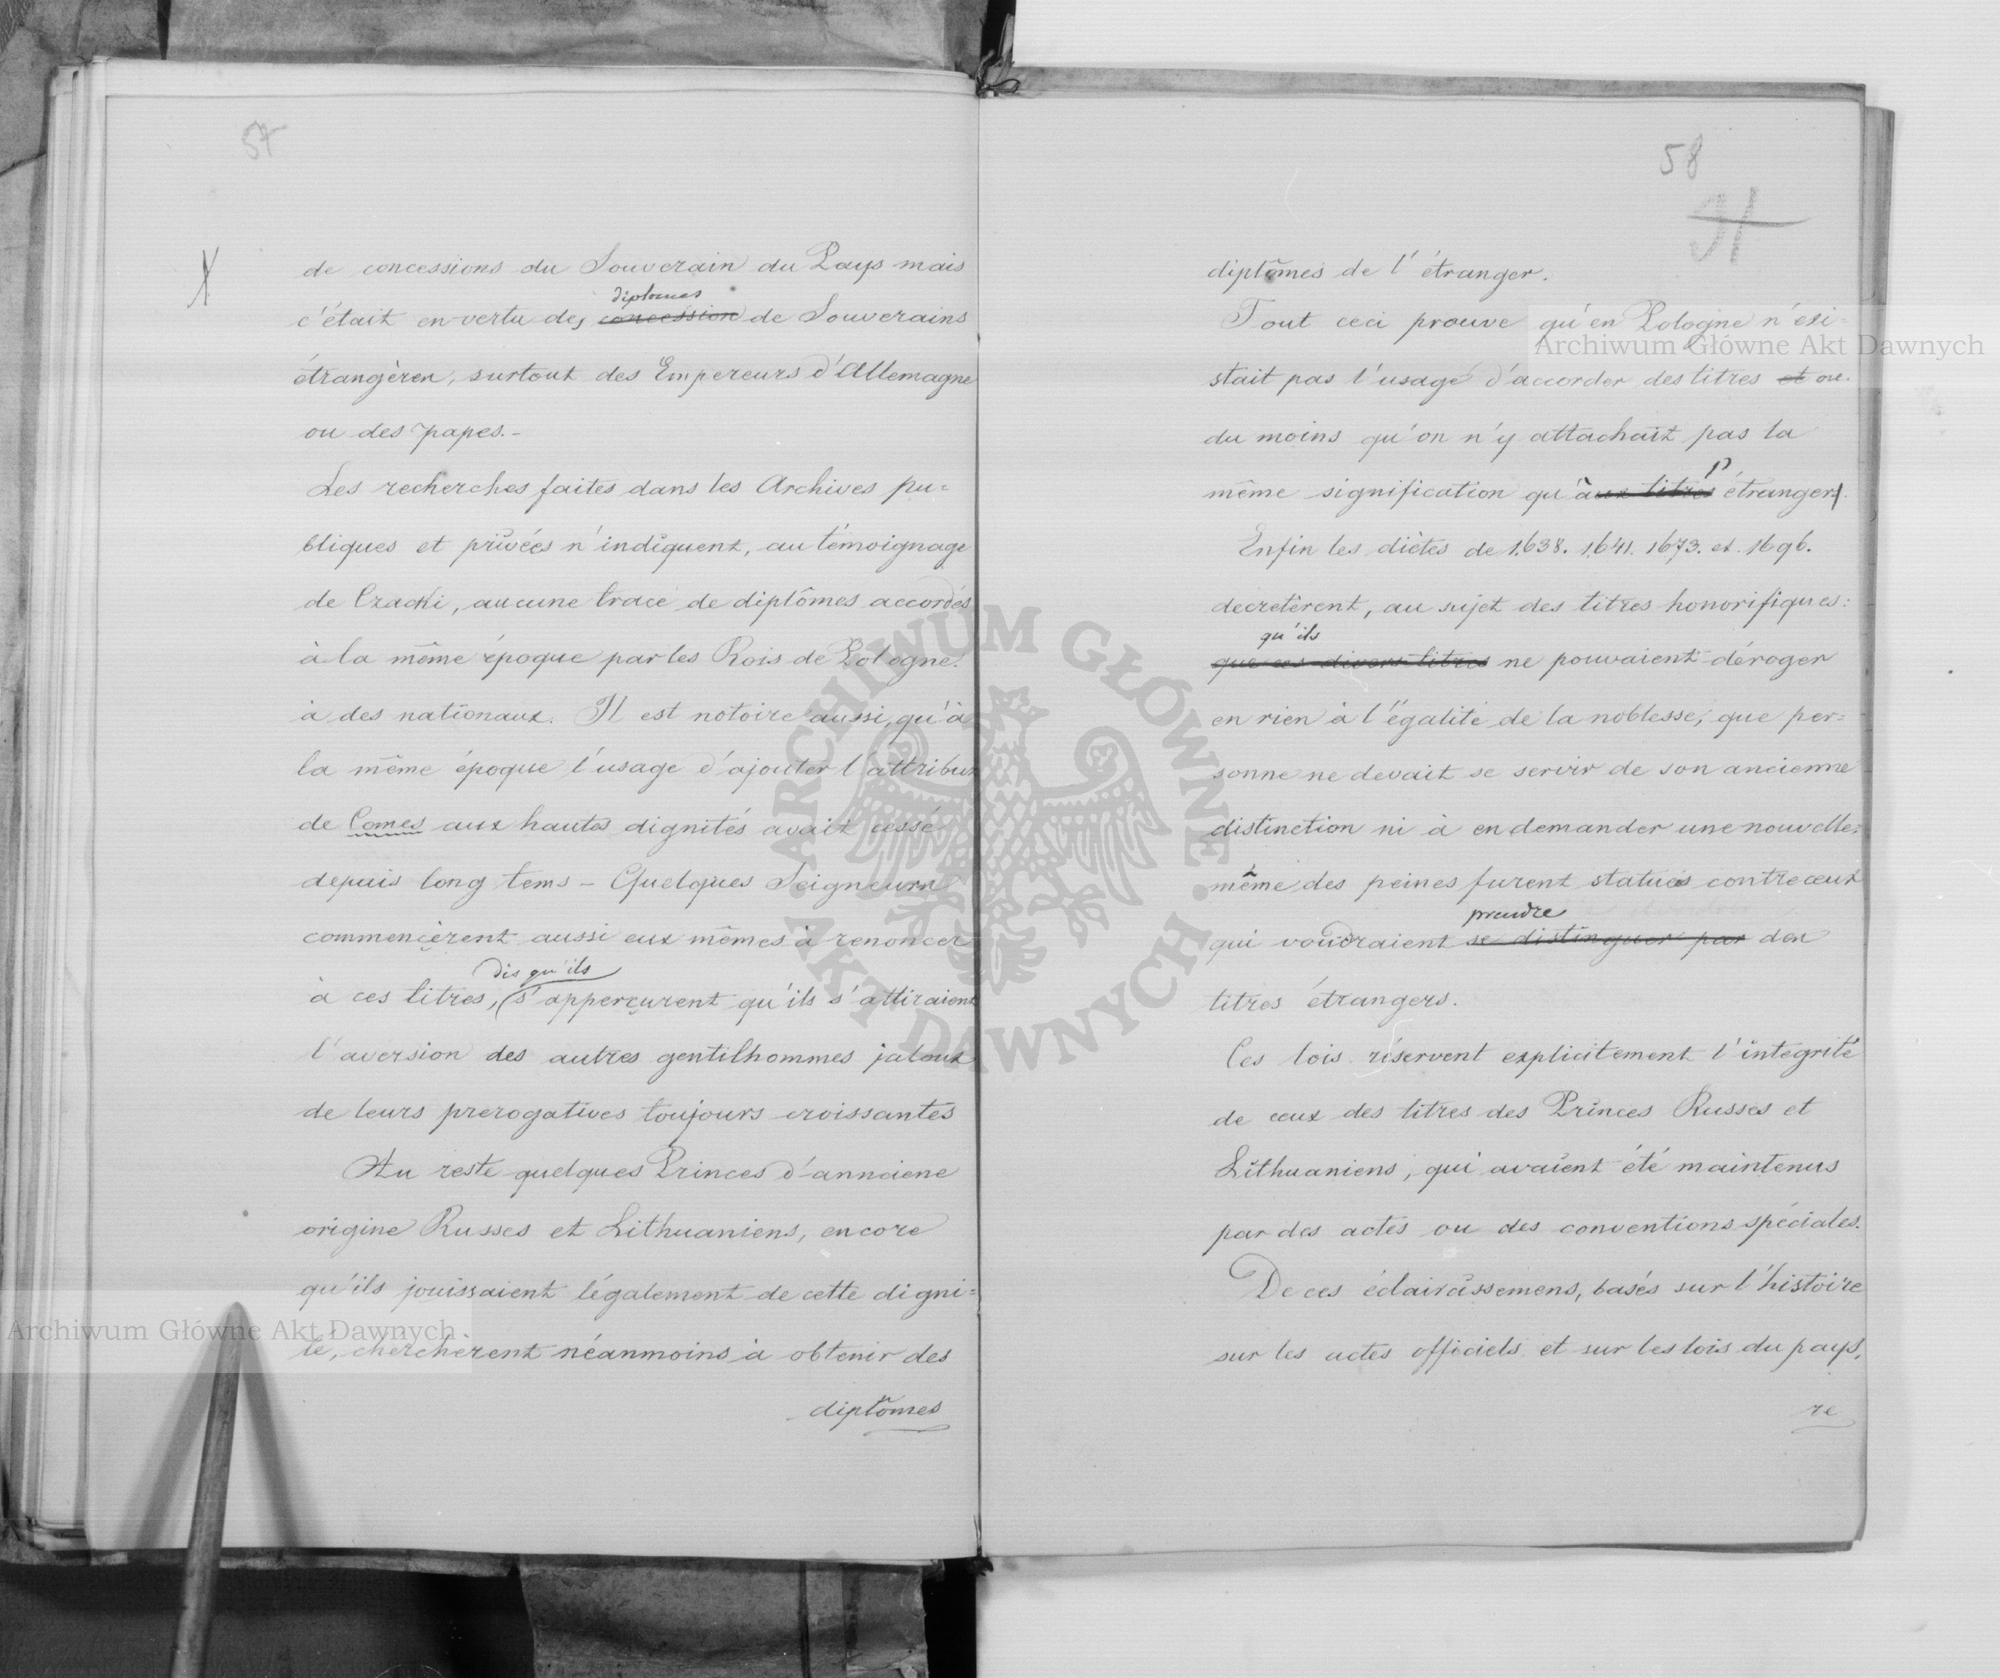 57
de concessions du Souverain du Pays mais
diplomes
c'était en vertu des concession de Souverains
étrangèren, surtout des Empereurs d'Allemagne
ou des papes.-
Les recherches faites dans les Archives pu=
bliques et privées n'indiquent, au témoignage
de Czacki, aucune trace de diplômes accordés
à la même époque par les Rois de Pologne.
à des nationaux. Il est notoire aussi, qu'à
la même époque l'usage d'ajouter l'attribut
de Comes aux hautes dignités avait cessé
depuis long tems - Quelques Seigneurs
commençèrent aussi eux mêmes à renoncer
dis qu'ils
à ces titres, s'apperçurent qu'ils s'attiraient
l'aversion des autres gentilhommes jaloux
de leurs prerogatives toujours croissantes
Au reste quelques Princes d'annciene
origine Russes et Lithuaniens, encore
qu'ils jouissaient légalement de cette digni=
té, cherchèrent néanmoins à obtenir des
diplômes
58
diplômes de l'étranger.
Tout ceci prouve qu'en Pologne n'exi=
stait pas l'usage d'accorder des titres et ou
du moins qu'on n'y attachait pas la
même signification qu'aux titres étrangers.
Enfin les diètes de 1638. 1641. 1673. et 1696.
decretèrent, au sujet des titres honorifiques:
qu'ils
que ces divers titres ne pouvaient déroger
en rien à l'égalité de la noblesse, que per=
sonne ne devait se servir de son ancienne
distinction ni à en demander une nouvelle;
même des peines furent statués contre ceux
prendre
qui voudraient se distinguer par des
titres étrangers.
Ces lois réservent explicitement l'intégrité
de ceux des titres des Princes Russes et
Lithuaniens, qui avaient été maintenus
par des actes ou des conventions spéciales.
De ces éclaircissemens, basés sur l'histoire
sur les actes officiels et sur les lois du pays,
re
Archiwum Główne Akt Dawnych
Archiwum Główne Akt Dawnych
ARCHIWUM GŁÓWNE AKT DAWNYCH